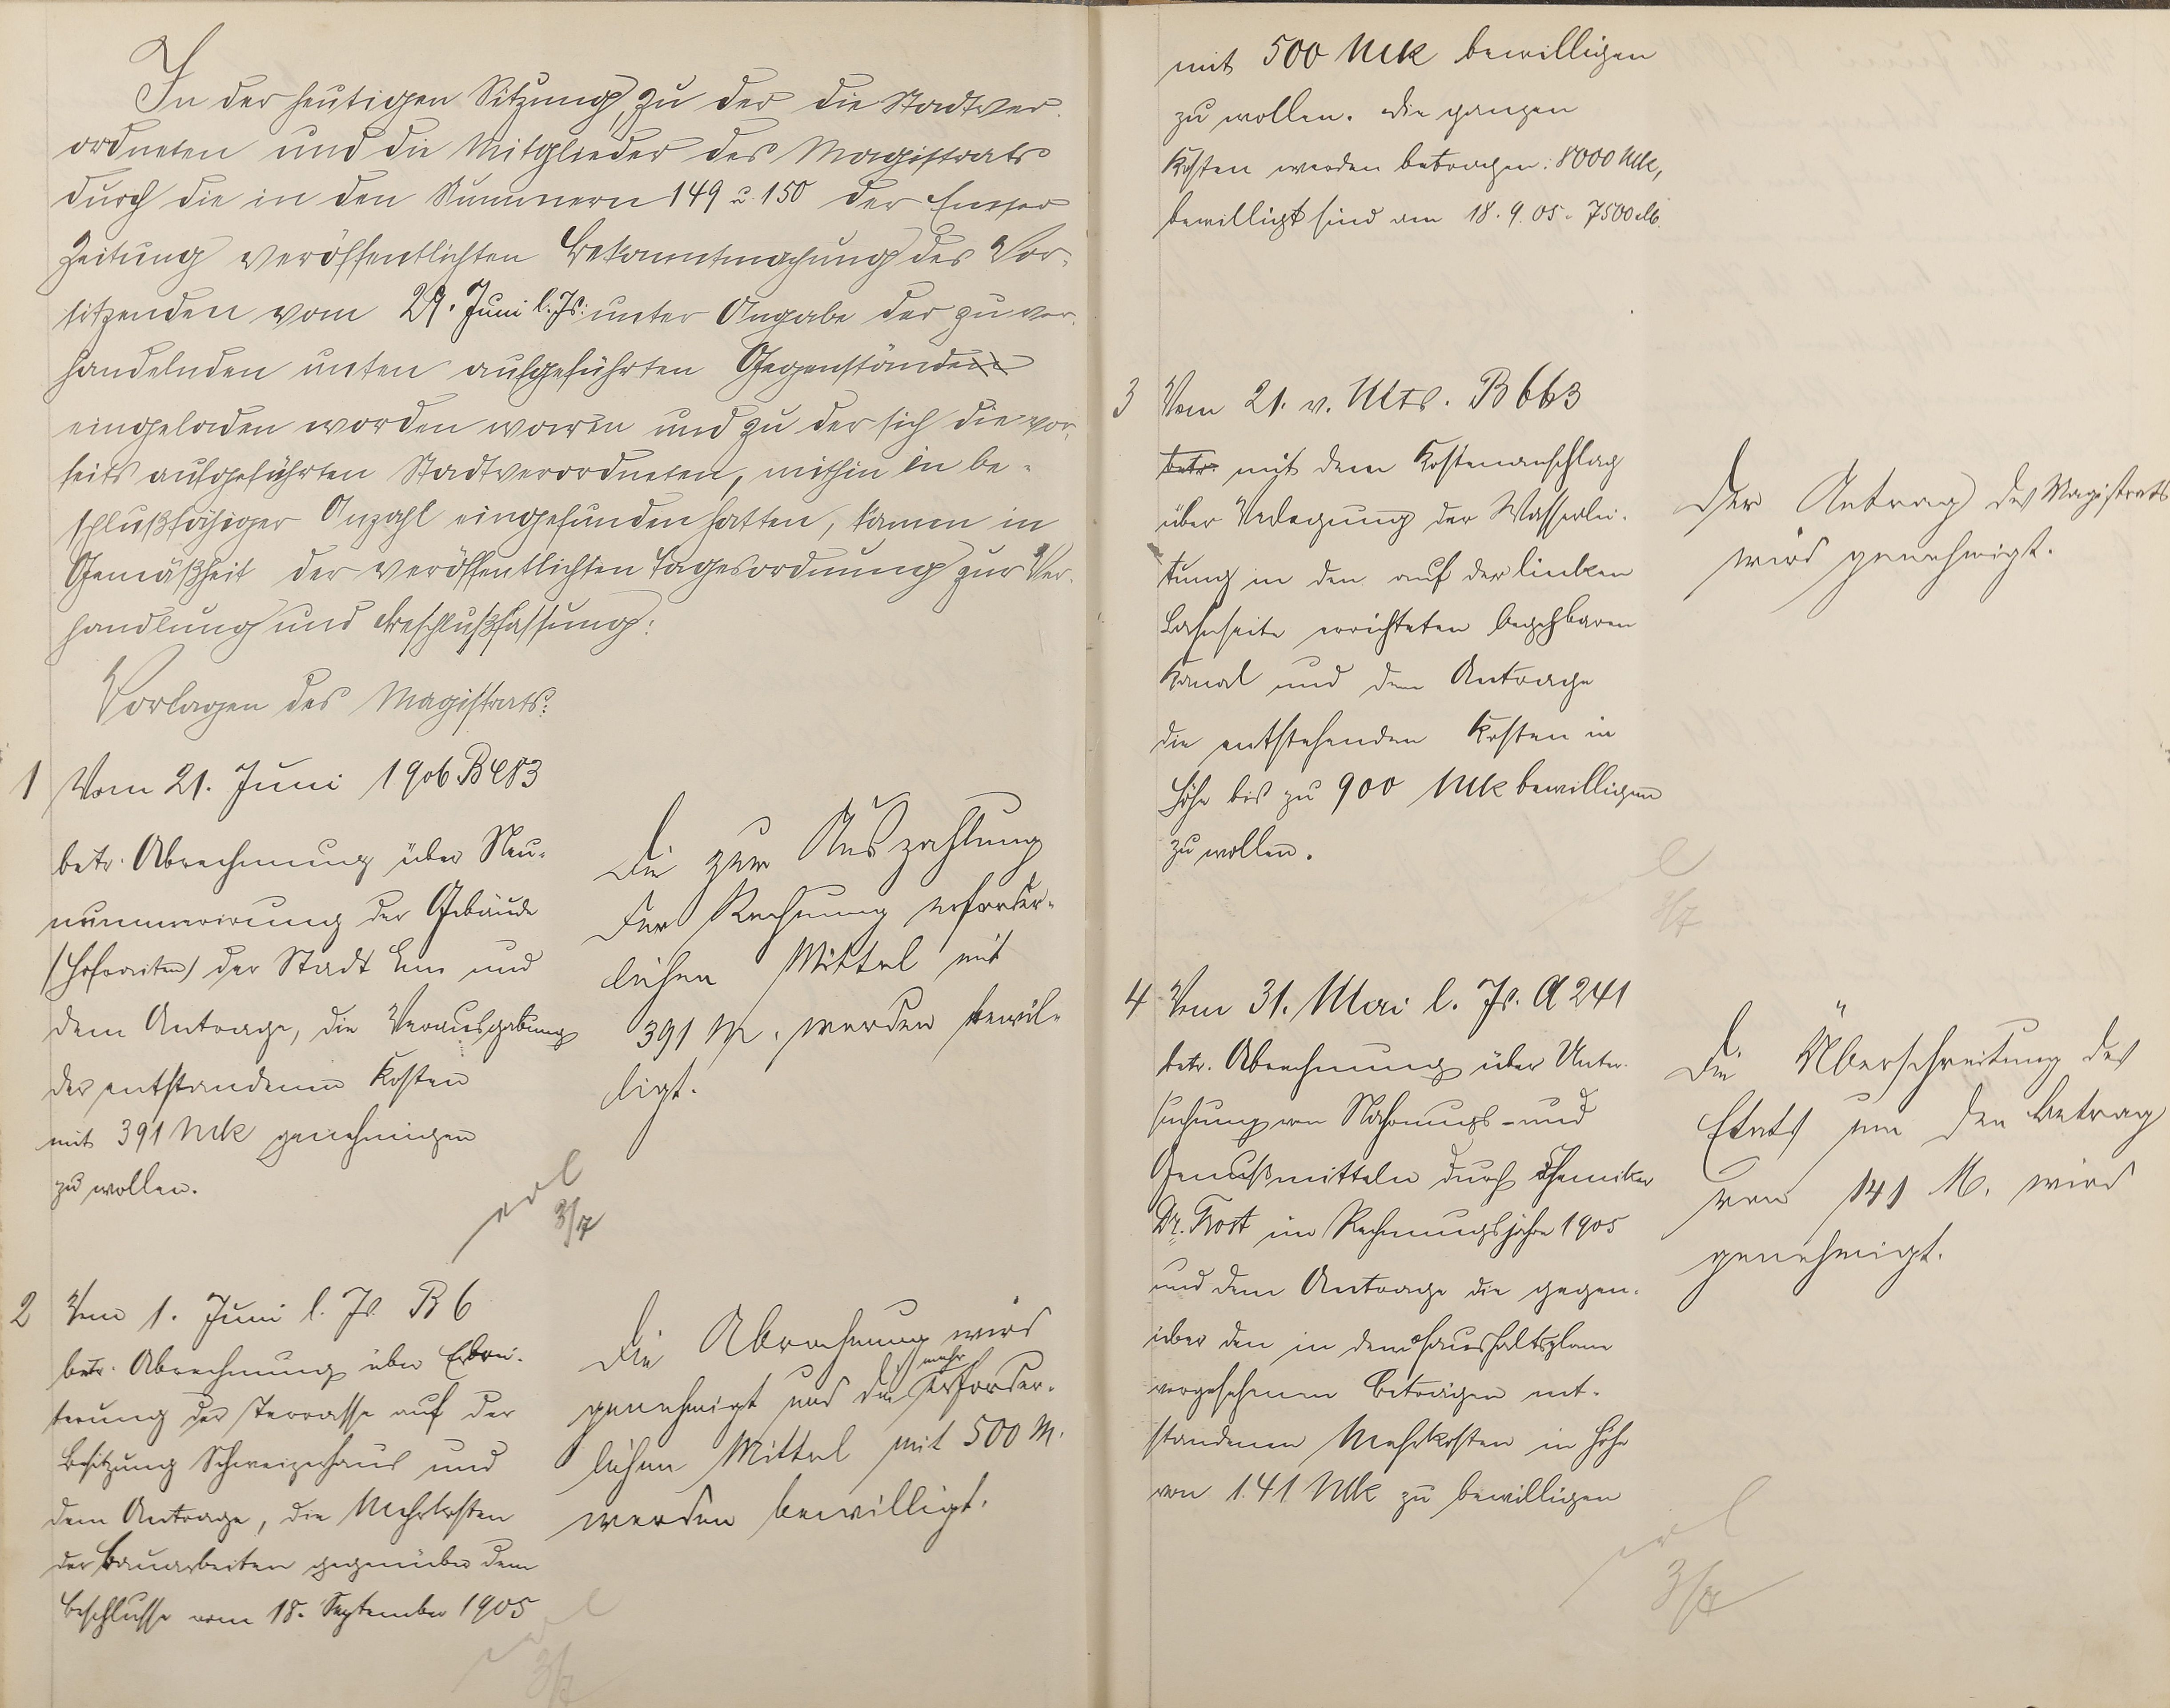 In der heutigen Sitzung, zu der die Stadtver-
ordneten und die Mitglieder des Magistrats
durch die in den Nummern 149 u. 150 der Emser
Zeitung veröffentlichten Bekanntmachung des Vor-
sitzenden vom 29. Juni l. Js. unter Angabe der zu ver-
handelnden unten aufgeführten Gegenstände
eingeladen worden waren und zu der sich die vor-
seits aufgeführten Stadtverordneten, mithin in be-
schlußfähiger Anzahl eingefunden hatten, kamen in
Gemäßheit der veröffentlichten Tagesordnung zur Ver-
handlung und Beschlußfassung:
Vorlagen des Magistrats:
1 Vom 21. Juni 1906 B 483
betr. Abrechnung über Neu-
nummerierung der Gebäude
(Hofreiten) der Stadt Ems und
dem Antrage, die Verausgabung
der entstandenen Kosten
mit 391 Mk genehmigen
zu wollen.
Die zur Auszahlung
der Rechnung erforder-
lichen Mittel mit
391 M. werden bewil-
ligt.
erl
3/7
2 Vom 1. Juni l. Js. B 6
betr. Abrechnung über Erbrei-
terung der Terrasse auf der
Besitzung Schweizerhaus und
dem Antrage, die Mehrkosten
der Bauarbeiten gegenüber dem
Beschlusse vom 18. September 1905
Die Abrechnung wird
genehmigt und die mehr erforder-
lichen Mittel mit 500 M.
werden bewilligt.
erl
3/7
mit 500 Mk bewilligen
zu wollen. Die ganzen
Kosten werden betragen: 8000 Mk,
bewilligt sind am 18. 9. 05. 7500 M.
3 Vom 21. v. Mts. B 663
betr. mit dem Kostenanschlag
über Verlegung der Wasserlei-
tung in den auf der linken
Lahnseite errichteten begehbaren
Kanal und dem Antrage
die entstehenden Kosten in
Höhe bis zu 900 Mk bewilligen
zu wollen.
Der Antrag des Magistrats
wird genehmigt.
erl
3/7
4 Vom 31. Mai l. Js. A 241
betr. Abrechnung über Unter-
suchung von Nahrungs- und
Genußmitteln durch Chemiker
Dr. Frost im Rechnungsjahre 1905
und dem Antrage die gegen-
über den in dem Haushaltsplane
vorgesehenen Beträgen ent-
standenen Mehrkosten in Höhe
von 141 Mk zu bewilligen
Die Überschreitung des
Etats um den Betrag
von 141 M. wird
genehmigt.
erl
3/7